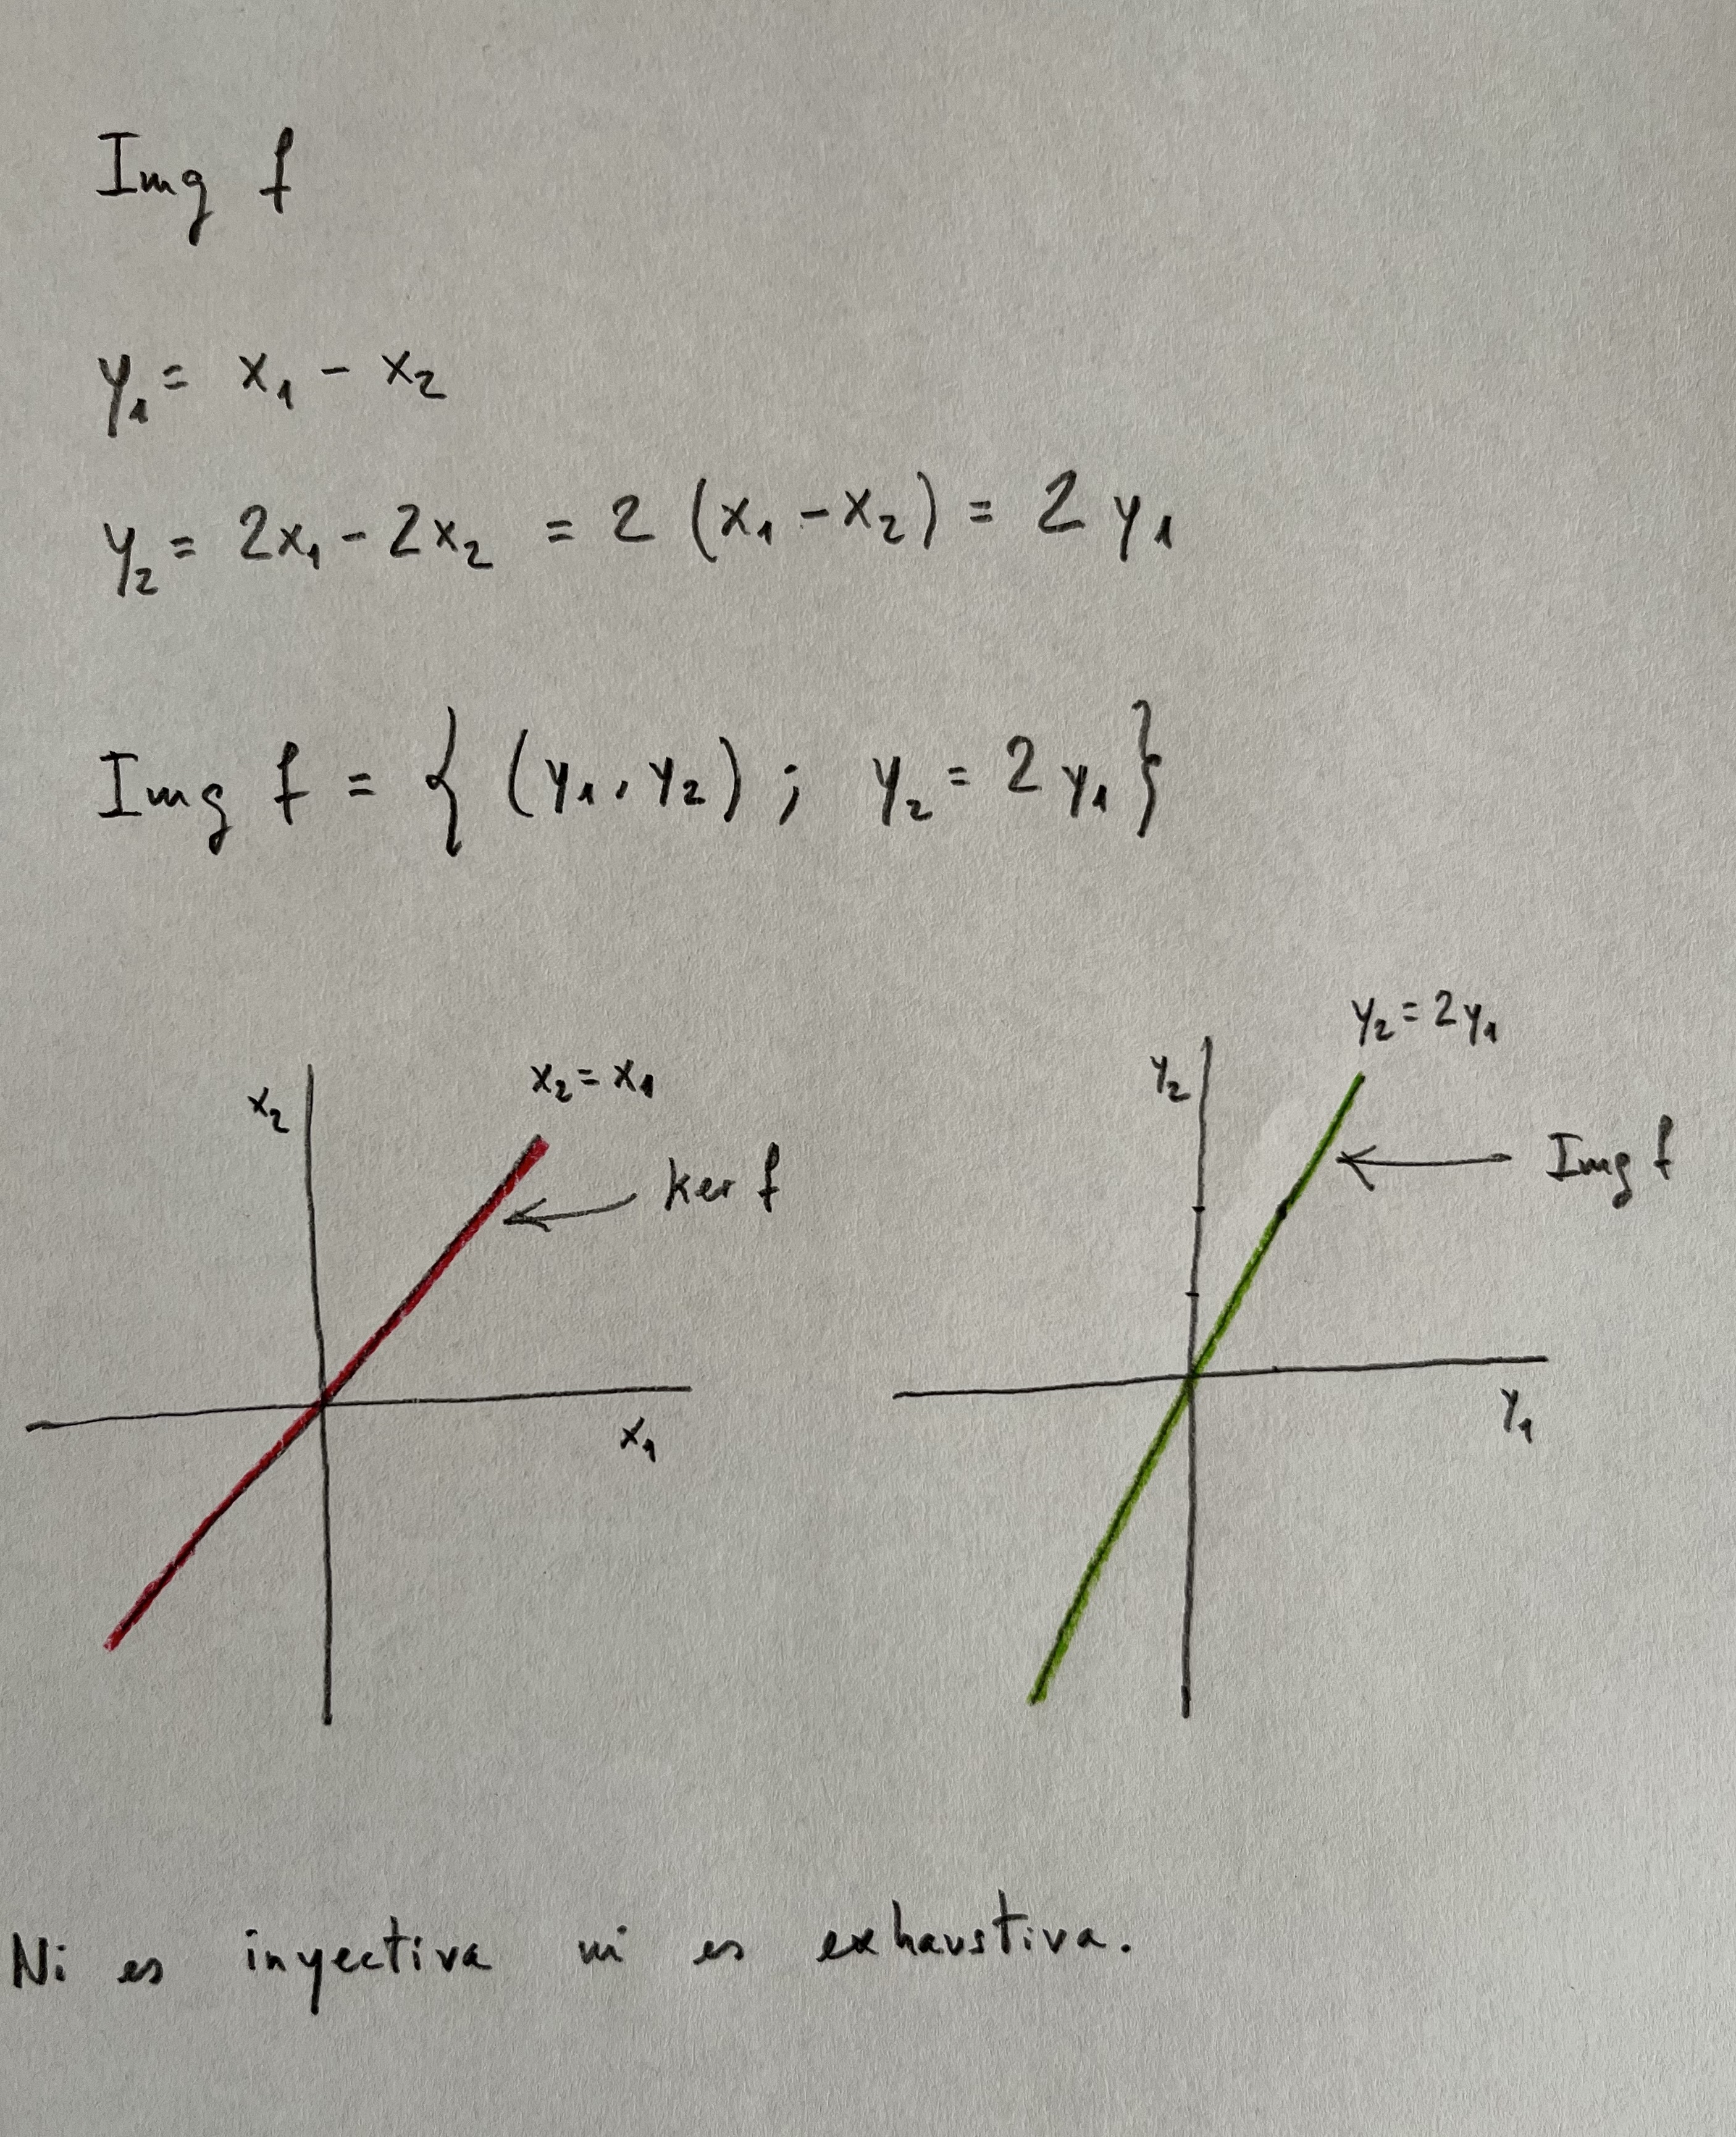 Img f
y₁ = x₁ - x₂
y₂ = 2x₁ - 2x₂ = 2 (x₁ - x₂) = 2 y₁
Img f = { (y₁, y₂) ; y₂ = 2 y₁ }
x₂
x₂ = x₁
Ker f
x₁
y₂
y₂ = 2y₁
Img f
y₁
Ni es inyectiva ni es exhaustiva.